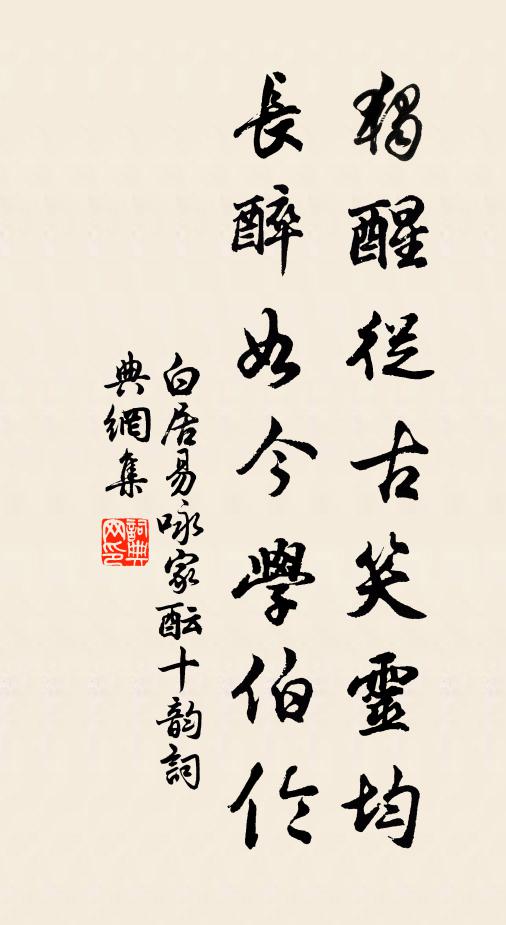 獨醒從古笑靈均
長醉如今學伯伶
白居易咏家酝十韵詞
典網集
詞典網印